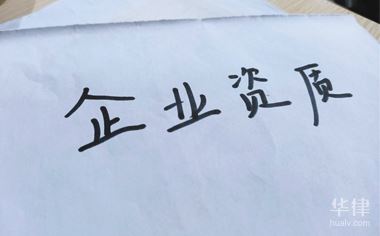 企业资质
华律
hualv.com